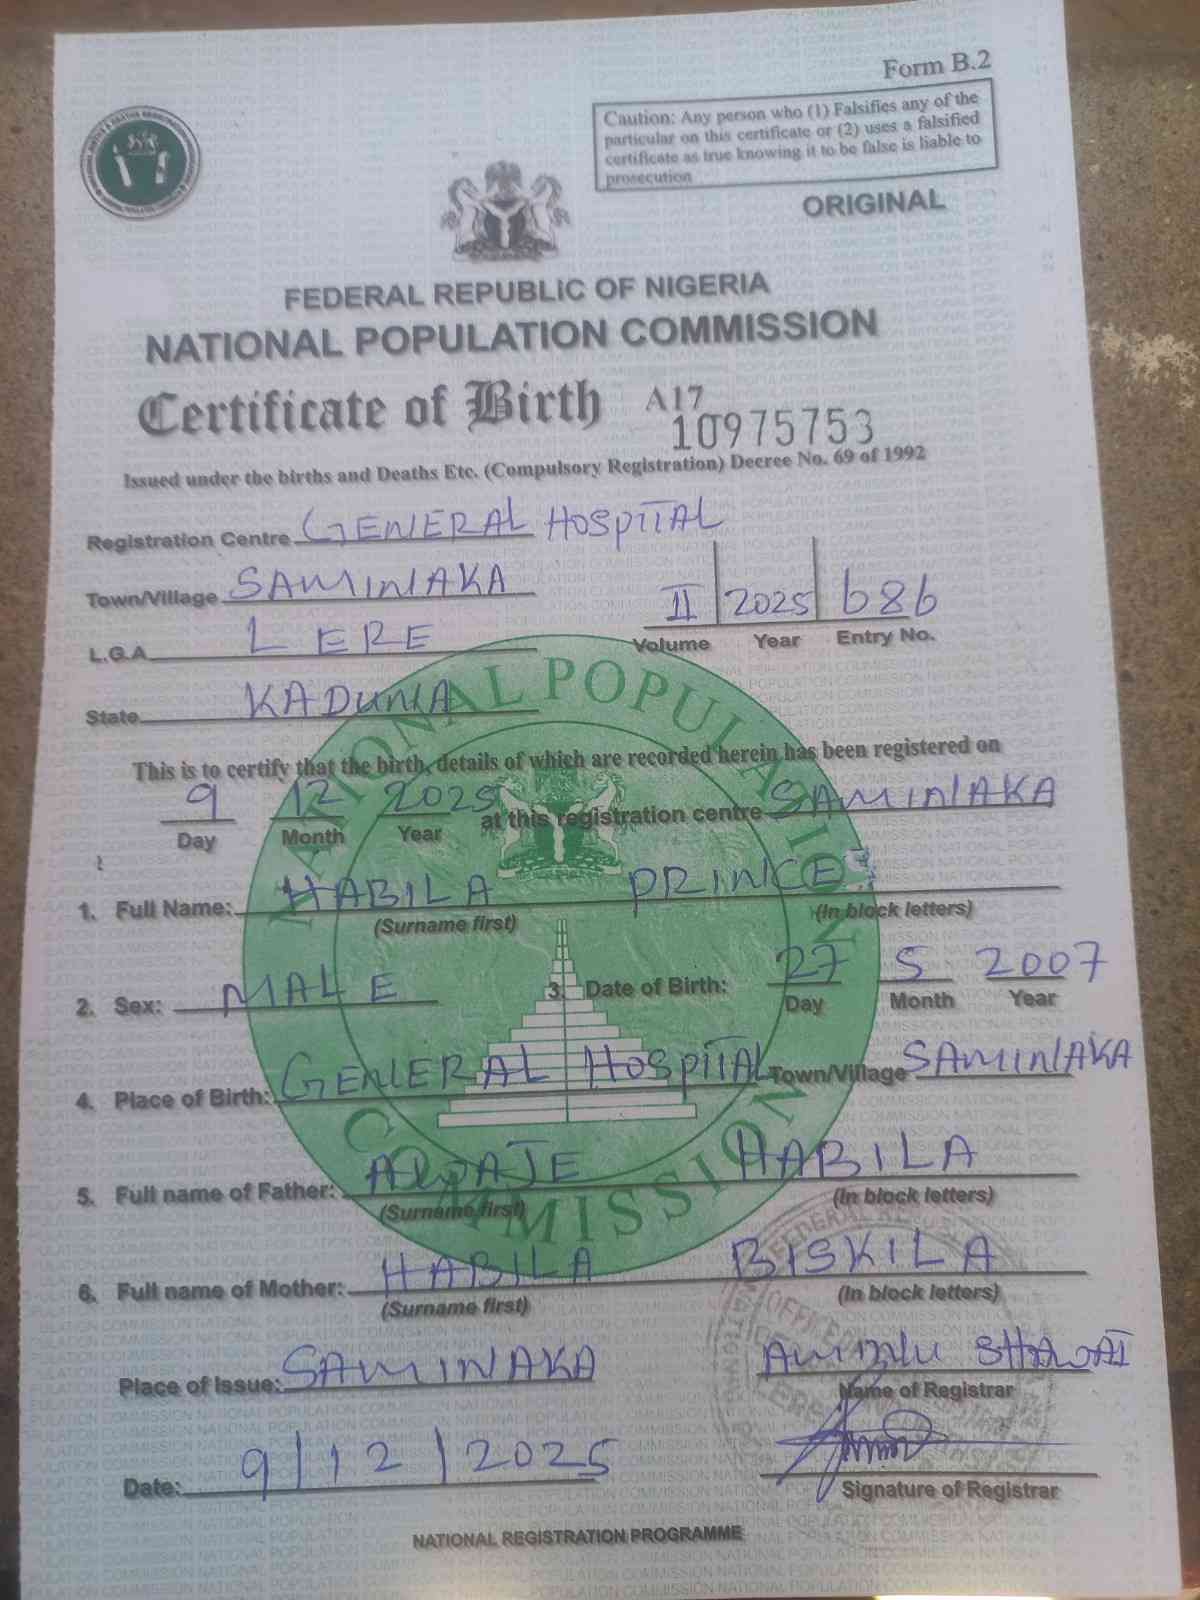 Form B.2
Caution: Any person who (1) Falsifies any of the
particular on this certificate or (2) uses a falsified
certificate as true knowing it to be false is liable to
prosecution
ORIGINAL
FEDERAL REPUBLIC OF NIGERIA
NATIONAL POPULATION COMMISSION
Certificate of Birth A17
10975753
Issued under the births and Deaths Etc. (Compulsory Registration) Decree No. 69 of 1992
Registration Centre GENERAL HOSPITAL
Town/Village SAMINAKA
II 2025 686
Volume Year Entry No.
L.G.A LERE
State KADUNA
This is to certify that the birth, details of which are recorded herein has been registered on
9 12 2025 at this registration centre SAMINAKA
Day Month Year
1. Full Name: HABILA PRINCE
(Surname first) (In block letters)
2. Sex: MALE 3. Date of Birth: 27 5 2007
Day Month Year
4. Place of Birth: GENERAL HOSPITAL Town/Village SAMINAKA
5. Full name of Father: HABILA
(Surname first) (In block letters)
6. Full name of Mother: HABILA BISKILA
(Surname first) (In block letters)
Place of Issue: SAMINAKA
AMINU
Name of Registrar
Date: 9/12/2025
Signature of Registrar
NATIONAL REGISTRATION PROGRAMME
NATIONAL POPULATION COMMISSION